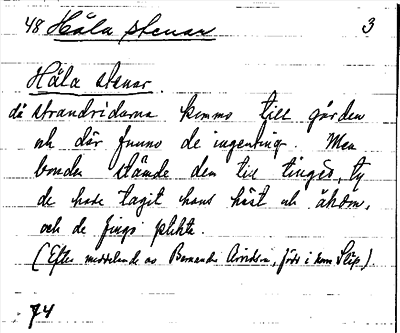 48 Håla stenar 3
Håla stenar.
då strandridarna kommo till gården
och där funno de ingenting. Men
bonden stämde dem till tinges, ty
de hade tagit hans häst och åkdon,
och de fingo plikta.
(Efter meddelande av Bernanda Arvidsson, född i kom Släp)
74